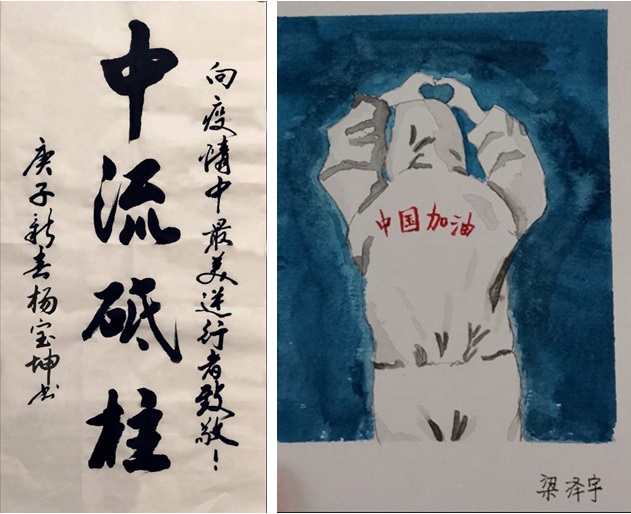 向疫情中最美逆行者致敬！
中流砥柱
庚子新春杨宝坤书
中国加油
梁泽宇